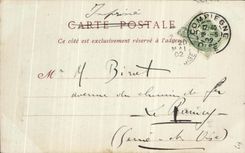 Imprimé
CARTE POSTALE
Ce côté est exclusivement réservé à l'adresse
COMPIEGNE
OISE
02
M. Binet
avenue du chemin de fer
Le Raincy
(Seine-et-Oise)